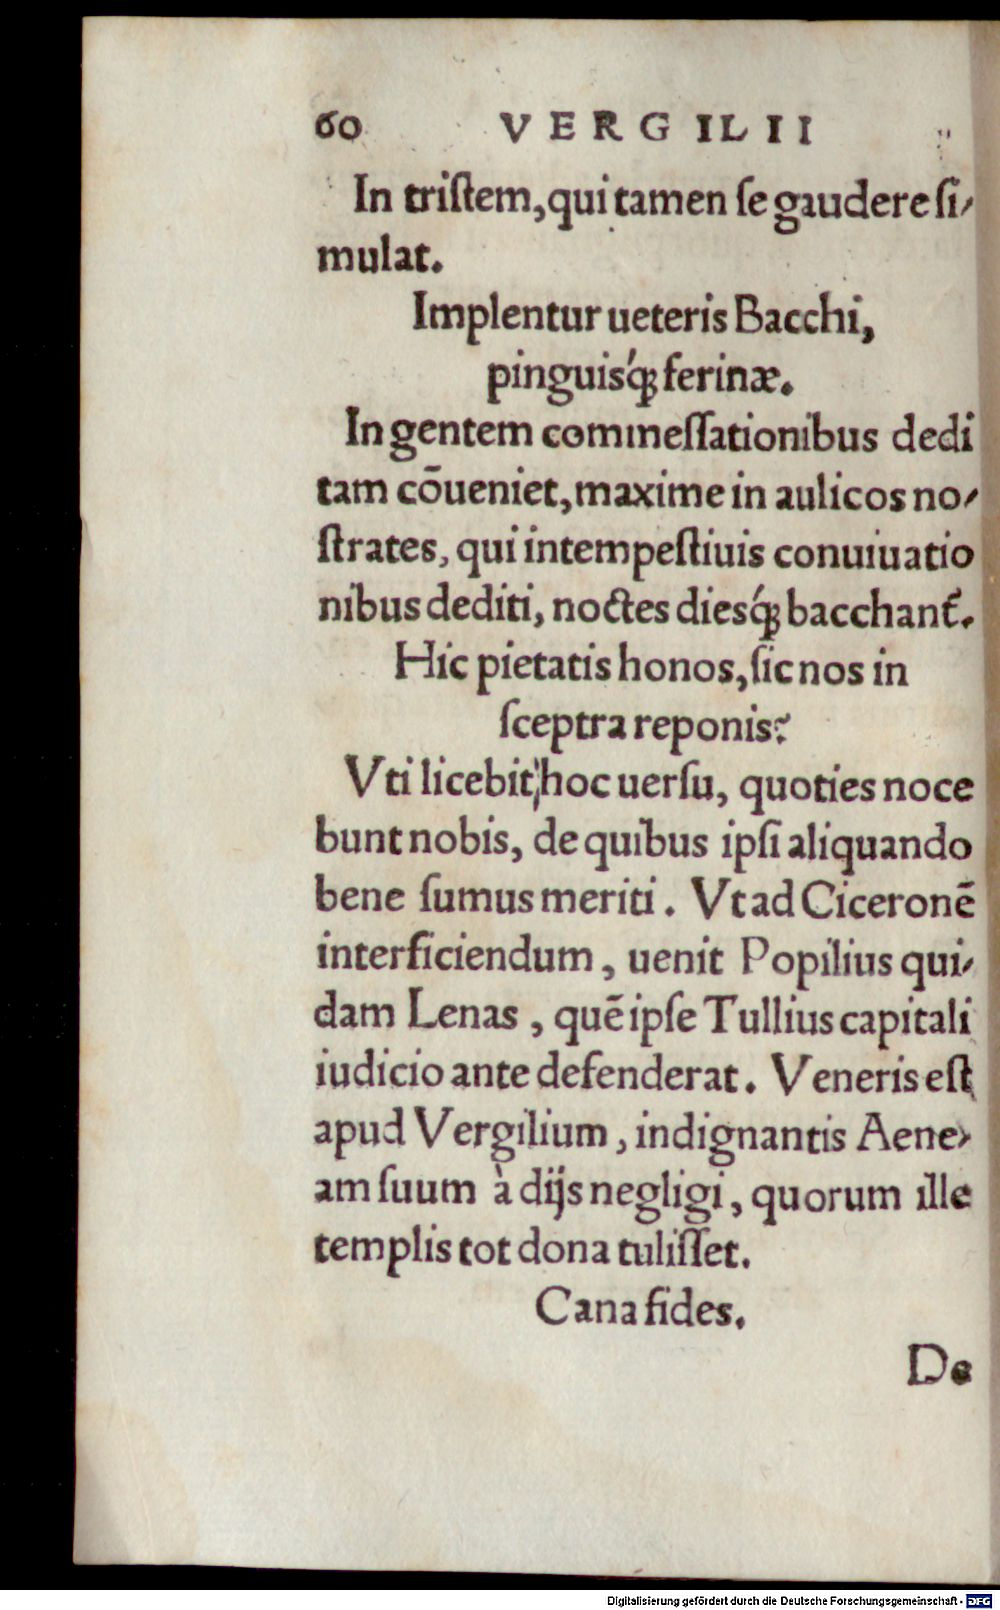 60 VERGILII
In triſtem, qui tamen ſe gaudere ſi⸗
mulat.
Implentur ueteris Bacchi,
pinguisq́ꝫ ferinæ.
In gentem commeſſationibus dedi
tam cōueniet, maxime in aulicos no⸗
ſtrates, qui intempeſtiuis conuiuatio
nibus dediti, noctes diesq́ꝫ bacchant᷑.
Hic pietatis honos, ſic nos in
ſceptra reponis?
Vti licebit hoc uerſu, quoties noce
bunt nobis, de quibus ipſi aliquando
bene ſumus meriti. Vt ad Ciceronē
interficiendum, uenit Popilius qui⸗
dam Lenas, quē ipſe Tullius capitali
iudicio ante defenderat. Veneris eſt
apud Vergilium, indignantis Aene⸗
am ſuum à dijs negligi, quorum ille
templis tot dona tuliſſet.
Cana fides.
De
Digitalisierung gefördert durch die Deutsche Forschungsgemeinschaft - DFG